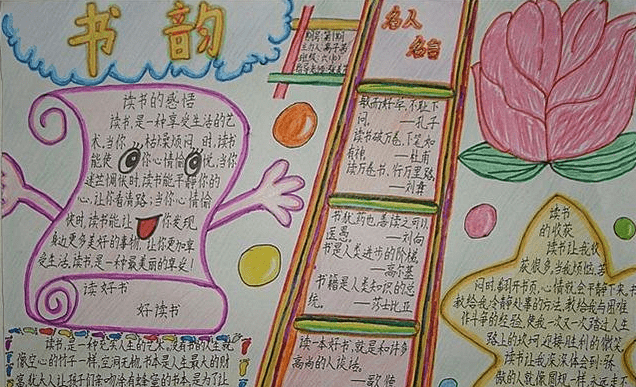 书韵
读书的感悟
读书,是一种享受生活的艺
术。当你枯燥烦闷时,读书
能使你心情愉悦,当你
迷茫惆怅时,读书能平静你的
心,让你看清路;当你心情愉
快时,读书能让你发现
身边更多美好的事物,让你更加享
受生活。读书,是一种最美丽的享受!
读好书
好读书
名人
名言
敏而好学,不耻下
问。——孔子
读书破万卷,下笔如
有神——杜甫
读万卷书,行万里路
——刘彝
书犹药也,善读之可以
医愚。——刘向
书是人类进步的阶梯。
——高尔基
书籍是人类知识的总
统。——莎士比亚
读一本好书,就是和许多
高尚的人谈话。
——歌德
读书
的收获
读书让我收
获很多,当我烦恼、苦
闷时,翻开书页,心情就会平静下来。书
教给我冷静处事的方法,教给我与困难
作斗争的经验,使我一次又一次踏过人生
路上的坎坷,迎接胜利的微笑
读书让我深深体会到:
读书,是一种充实人生的艺术。没有书的人生就
像空心的竹子一样,空洞无物。书本是人生最大的财